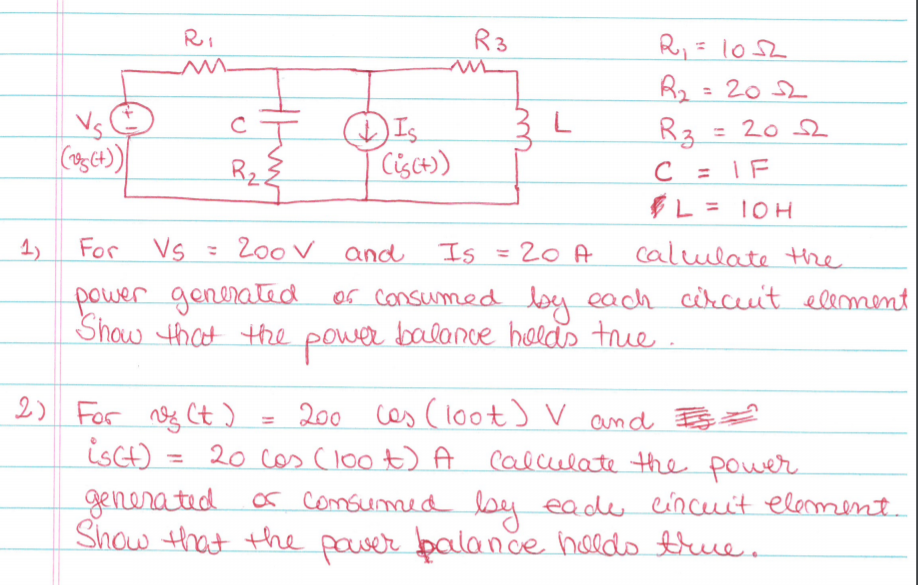 R1
R3
R1 = 10 Ω
R2 = 20 Ω
Vs
+
-
C
Is
L
R3 = 20 Ω
(vs(t))
R2
(is(t))
C = 1F
L = 10H
1) For Vs = 200 V and Is = 20 A calculate the
power generated or consumed by each circuit element
Show that the power balance holds true.
2) For vs(t) = 200 cos(100t) V and
is(t) = 20 cos(100t) A calculate the power
generated or consumed by each circuit element.
Show that the power balance holds true.